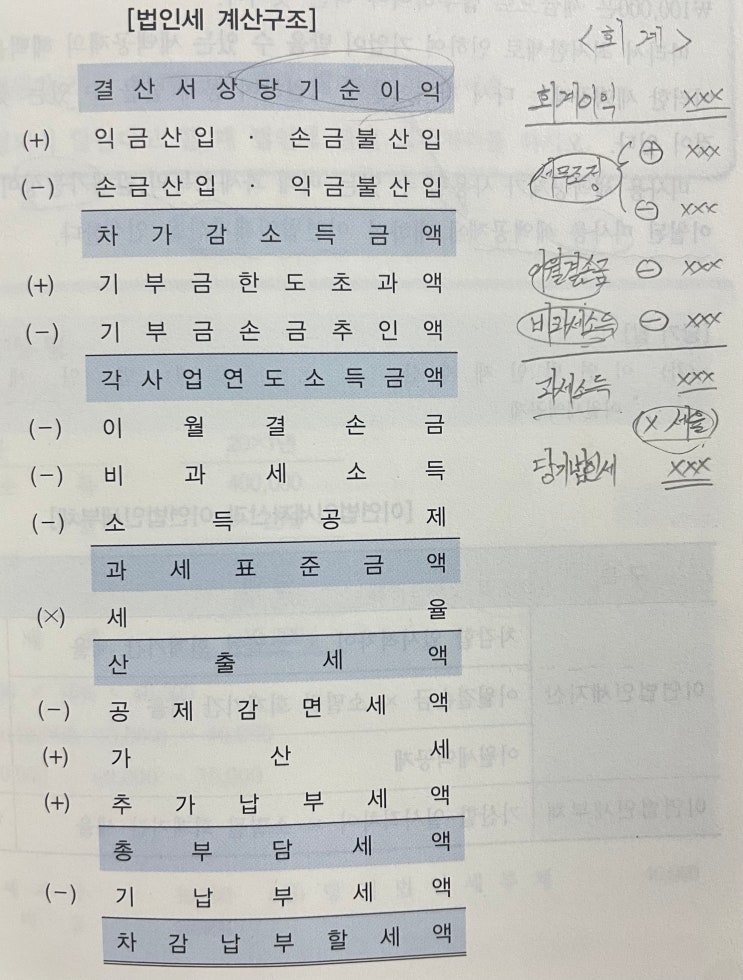 [법인세 계산구조]
결산서상당기순이익
(+) 익금산입 · 손금불산입
(-) 손금산입 · 익금불산입
차가감소득금액
(+) 기부금한도초과액
(-) 기부금손금추인액
각사업연도소득금액
(-) 이월결손금
(-) 비과세소득
(-) 소득공제
과세표준금액
(×) 세율
산출세액
(-) 공제감면세액
(+) 가산세
(+) 추가납부세액
총부담세액
(-) 기납부세액
차감납부할세액
<회계>
회계이익 xxx
세무조정 ⊕ xxx
⊖ xxx
이월결손금 ⊖ xxx
비과세소득 ⊖ xxx
과세소득 xxx
(x 세율)
당기법인세 xxx